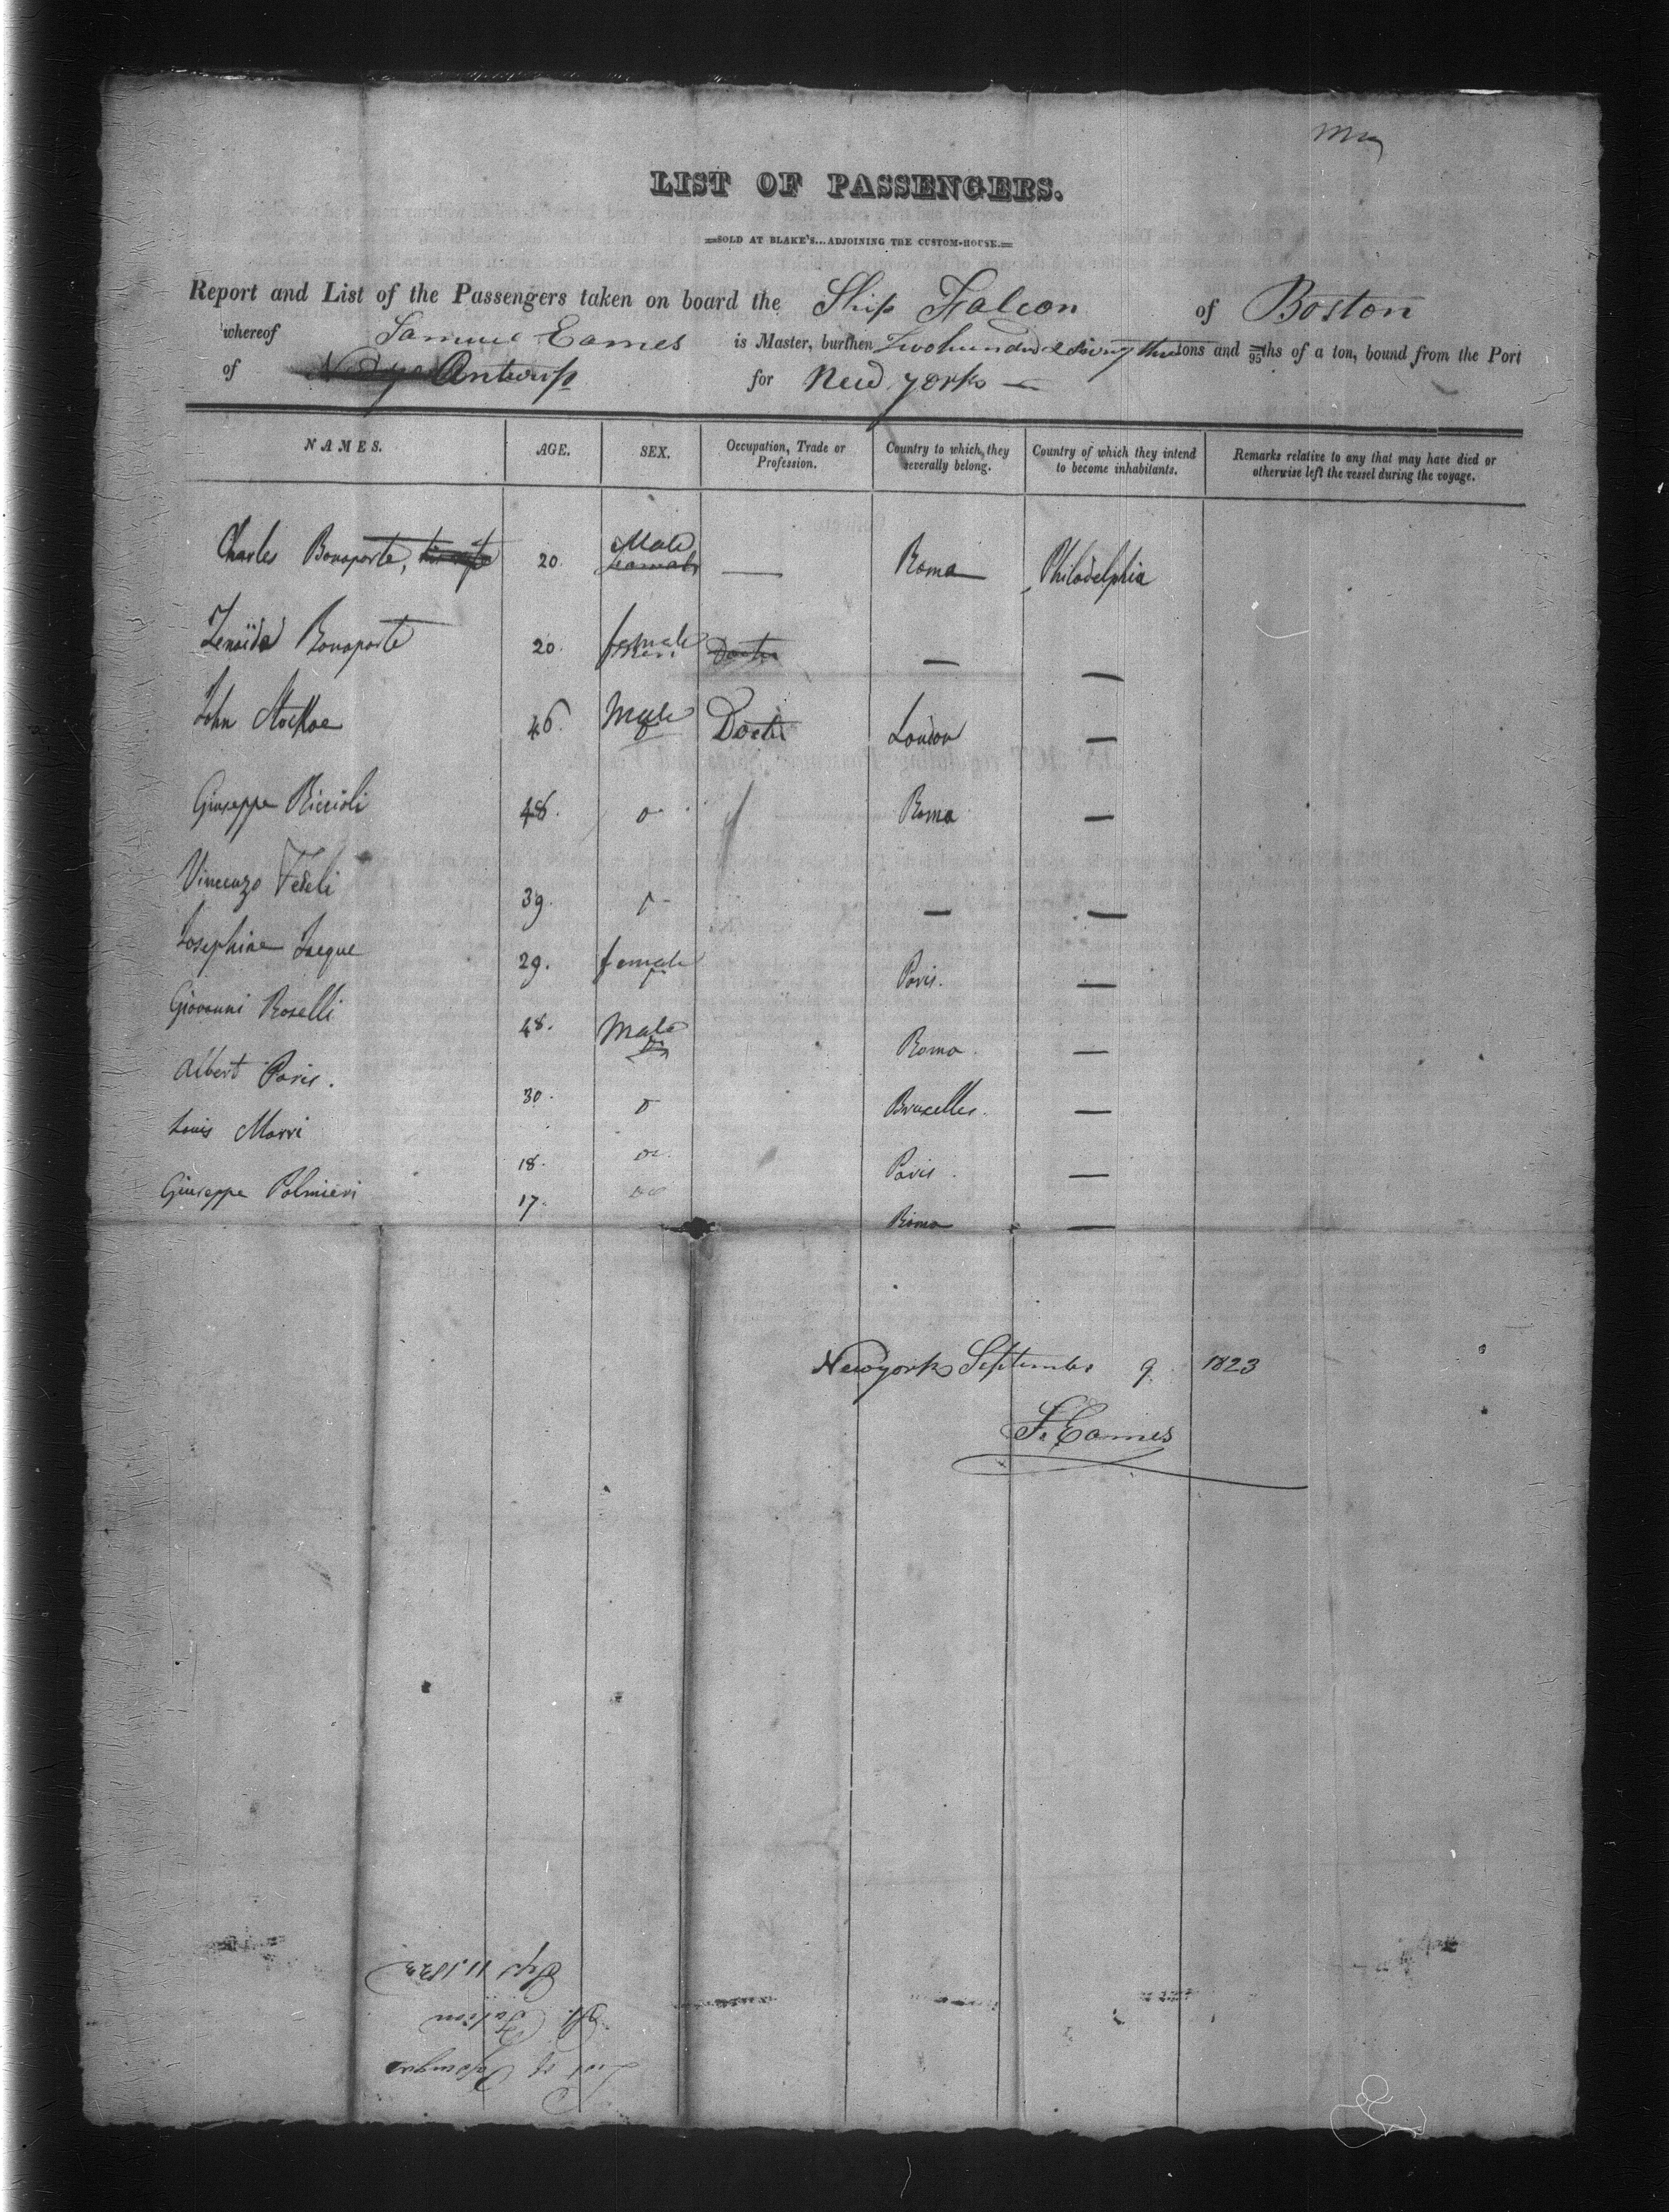 LIST OF PASSENGERS.
SOLD AT BLAKE'S...ADJOINING THE CUSTOM-HOUSE.
Report and List of the Passengers taken on board the Ship Falcon of Boston
whereof Samuel Eames is Master, burthen Two hundred & tons and 95ths of a ton, bound from the Port
of Antwerp for New york
NAMES. AGE. SEX. Occupation, Trade or Profession. Country to which they severally belong. Country of which they intend to become inhabitants. Remarks relative to any that may have died or otherwise left the vessel during the voyage.
Charles Bonaparte, his wife 20. Male female — Roma Philadelphia
Zenaïde Bonaparte 20. female Doctor — —
John Stokoe 46. Male Doctor London —
Giuseppe Riccioli 48. Roma —
Vincenzo Fedeli 39. — —
Josephine Lacque 29. female Paris. —
Giovanni Roselli 48. Male Roma. —
Albert Paris. 30. Bruxelles. —
Louis Morri 18. Paris. —
Giuseppe Palmieri 17. Roma —
Newyork September 9 1823
S. Eames
List of Passengers
Sh. Falcon
Sept 11. 1823